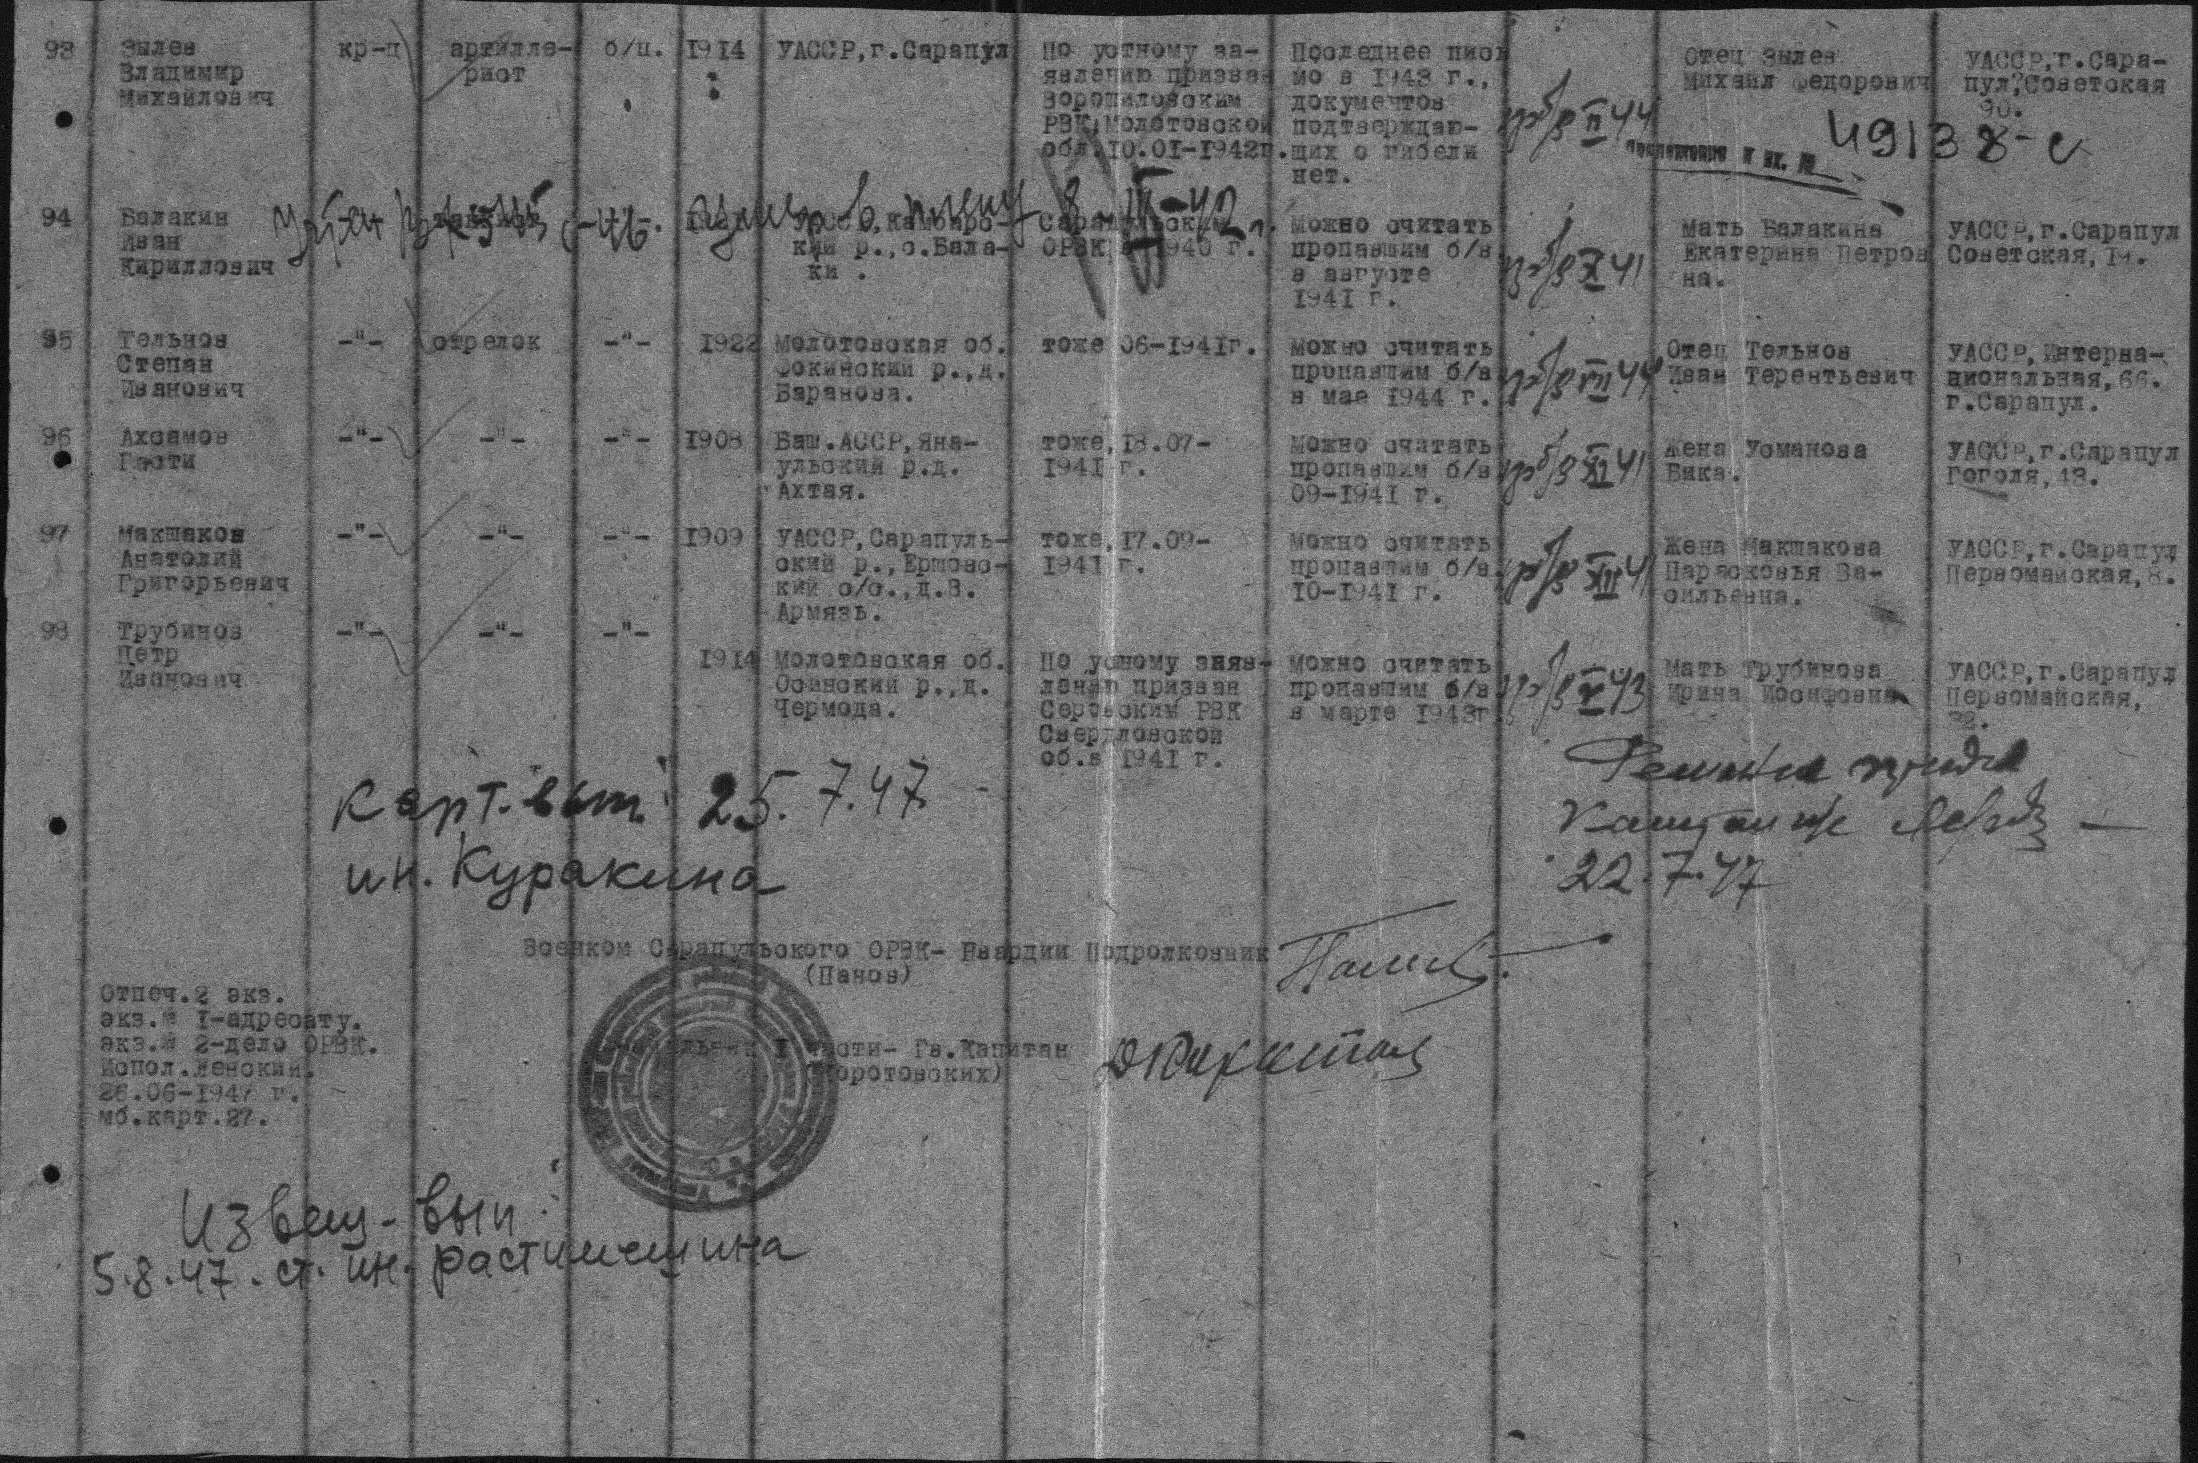 93 Зылев кр-ц артилле- б/п. 1914 УАССР,г.Сарапул По устному за- Последнее пись Отец Зылев УАССР,г.Сара-
Владимир рист явлению призван мо в 1943 г., Михаил Федорович пул,Советская
Михайлович Ворошиловским документов 90.
РВК,Молотовской подтверждаю- пр б/в II 44 49138-с
обл.10.01-1942г. щих о гибели
нет.
94 Балакин умер в плену 8. III-42 г. Сарапульским Можно считать Мать Балакина УАССР,г.Сарапул
Иван кий р.,с.Бала- ОРВК в 1940 г. пропавшим б/в Екатерина Петров Советская,
Кириллович ки . в августе пр б/в X 41 на.
1941 г.
95 Тельнов -"- стрелок -"- 1922 Молотовская об. тоже 06-1941г. Можно считать Отец Тельнов УАССР,Интерна-
Степан Фокинский р.,д. пропавшим б/в пр б/в VII 44 Иван Терентьевич циональная,66.
Иванович Баранова. в мае 1944 г. г.Сарапул.
96 Ахсамов -"- -"- -"- 1908 Баш.АССР,Яна- тоже,18.07- Можно считать Жена Усманова УАССР,г.Сарапул
Гасти ульский р.д. 1941 г. пропавшим б/в пр б/в XI 41 Бика. Гоголя,43.
Ахтая. 09-1941 г.
97 Макшаков -"- -"- -"- 1909 УАССР,Сарапуль- тоже,17.09- Можно считать Жена Макшакова УАССР,г.Сарапул
Анатолий ский р.,Ершовс- 1941 г. пропавшим б/в пр б/в XII 41 Парасковья Ва- Первомайская,8.
Григорьевич кий с/с.,д.В. 10-1941 г. сильевна.
Армязь.
98 Трубинов -"- -"- -"-
Петр 1914 Молотовская об. По усному заяв- Можно считать Мать Трубинова УАССР,г.Сарапул
Иванович Осинский р.,д. лению призван пропавшим б/в пр б/в X 43 Ирина Иосифовна Первомайская,
Чермода. Серовским РВК в марте 1943г
Свердловской
об.в 1941 г.
Карт. вып. 25.7.47
ин. Куракина
22.7.47
Военком Сарапульского ОРВК- Гвардии Подполковник
(Панов)
Отпеч.2 экз.
экз.№ 1-адресату.
экз.№ 2-дело ОРВК.
Испол.Ленский.
26.06-1947 г.
мб.карт.27.
части- Гв.Капитан
Извещ- вып.
5.8.47. ст. ин.